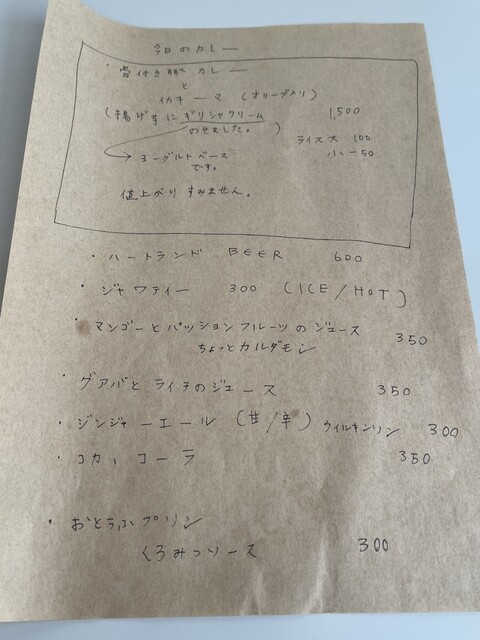 今日のカレー
・骨付き豚カレー
と
イカキーマ (オリーブ入り)
(揚げ芋にギリシャクリーム
のせました。) 1,500
ライス大 100
小 -50
ヨーグルトベース
です。
値上がりすみません。
・ハートランド BEER 600
・ジャワティー 300 (ICE/HOT)
・マンゴーとパッションフルーツのジュース
ちょっとカルダモン 350
・グアバとライチのジュース 350
・ジンジャーエール (甘/辛) ウィルキンソン 300
・コカ、コーラ 350
・おとうふプリン
くろみつソース 300